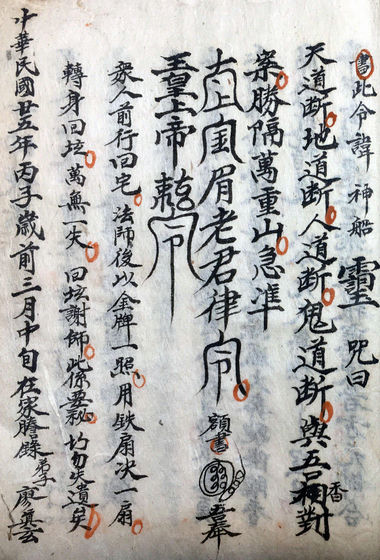 書此令諱神船靈咒曰
天道断地道断人道断鬼道断與吾相對
香
案勝隔萬重山急準
太上眉老君律令
額書 奉
玉皇上帝敕令
衆人前行回宅法師後以金牌一照用鉄扇决一扇
轉身回坛萬無一失回坛謝師此係要秘切勿失遺矣
中華民國廿五年丙子歲前三月中旬在家謄錄 廖